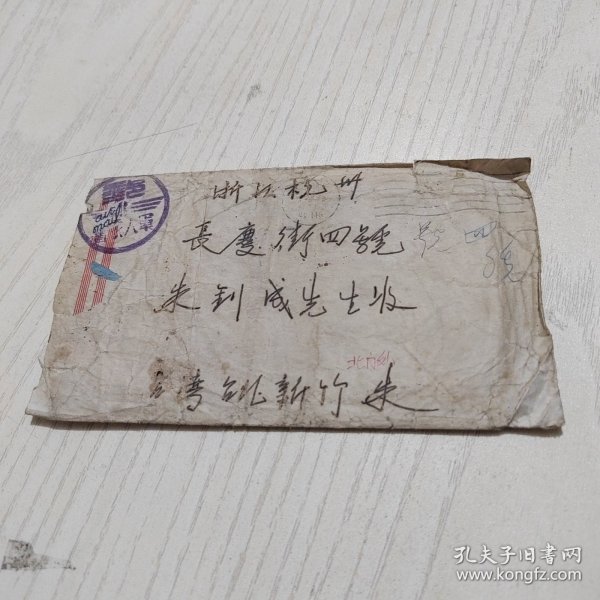 浙江杭州
長慶街四號
四號
朱釗成先生收
台湾台北新竹 朱
孔夫子旧书网
www.kongfz.com